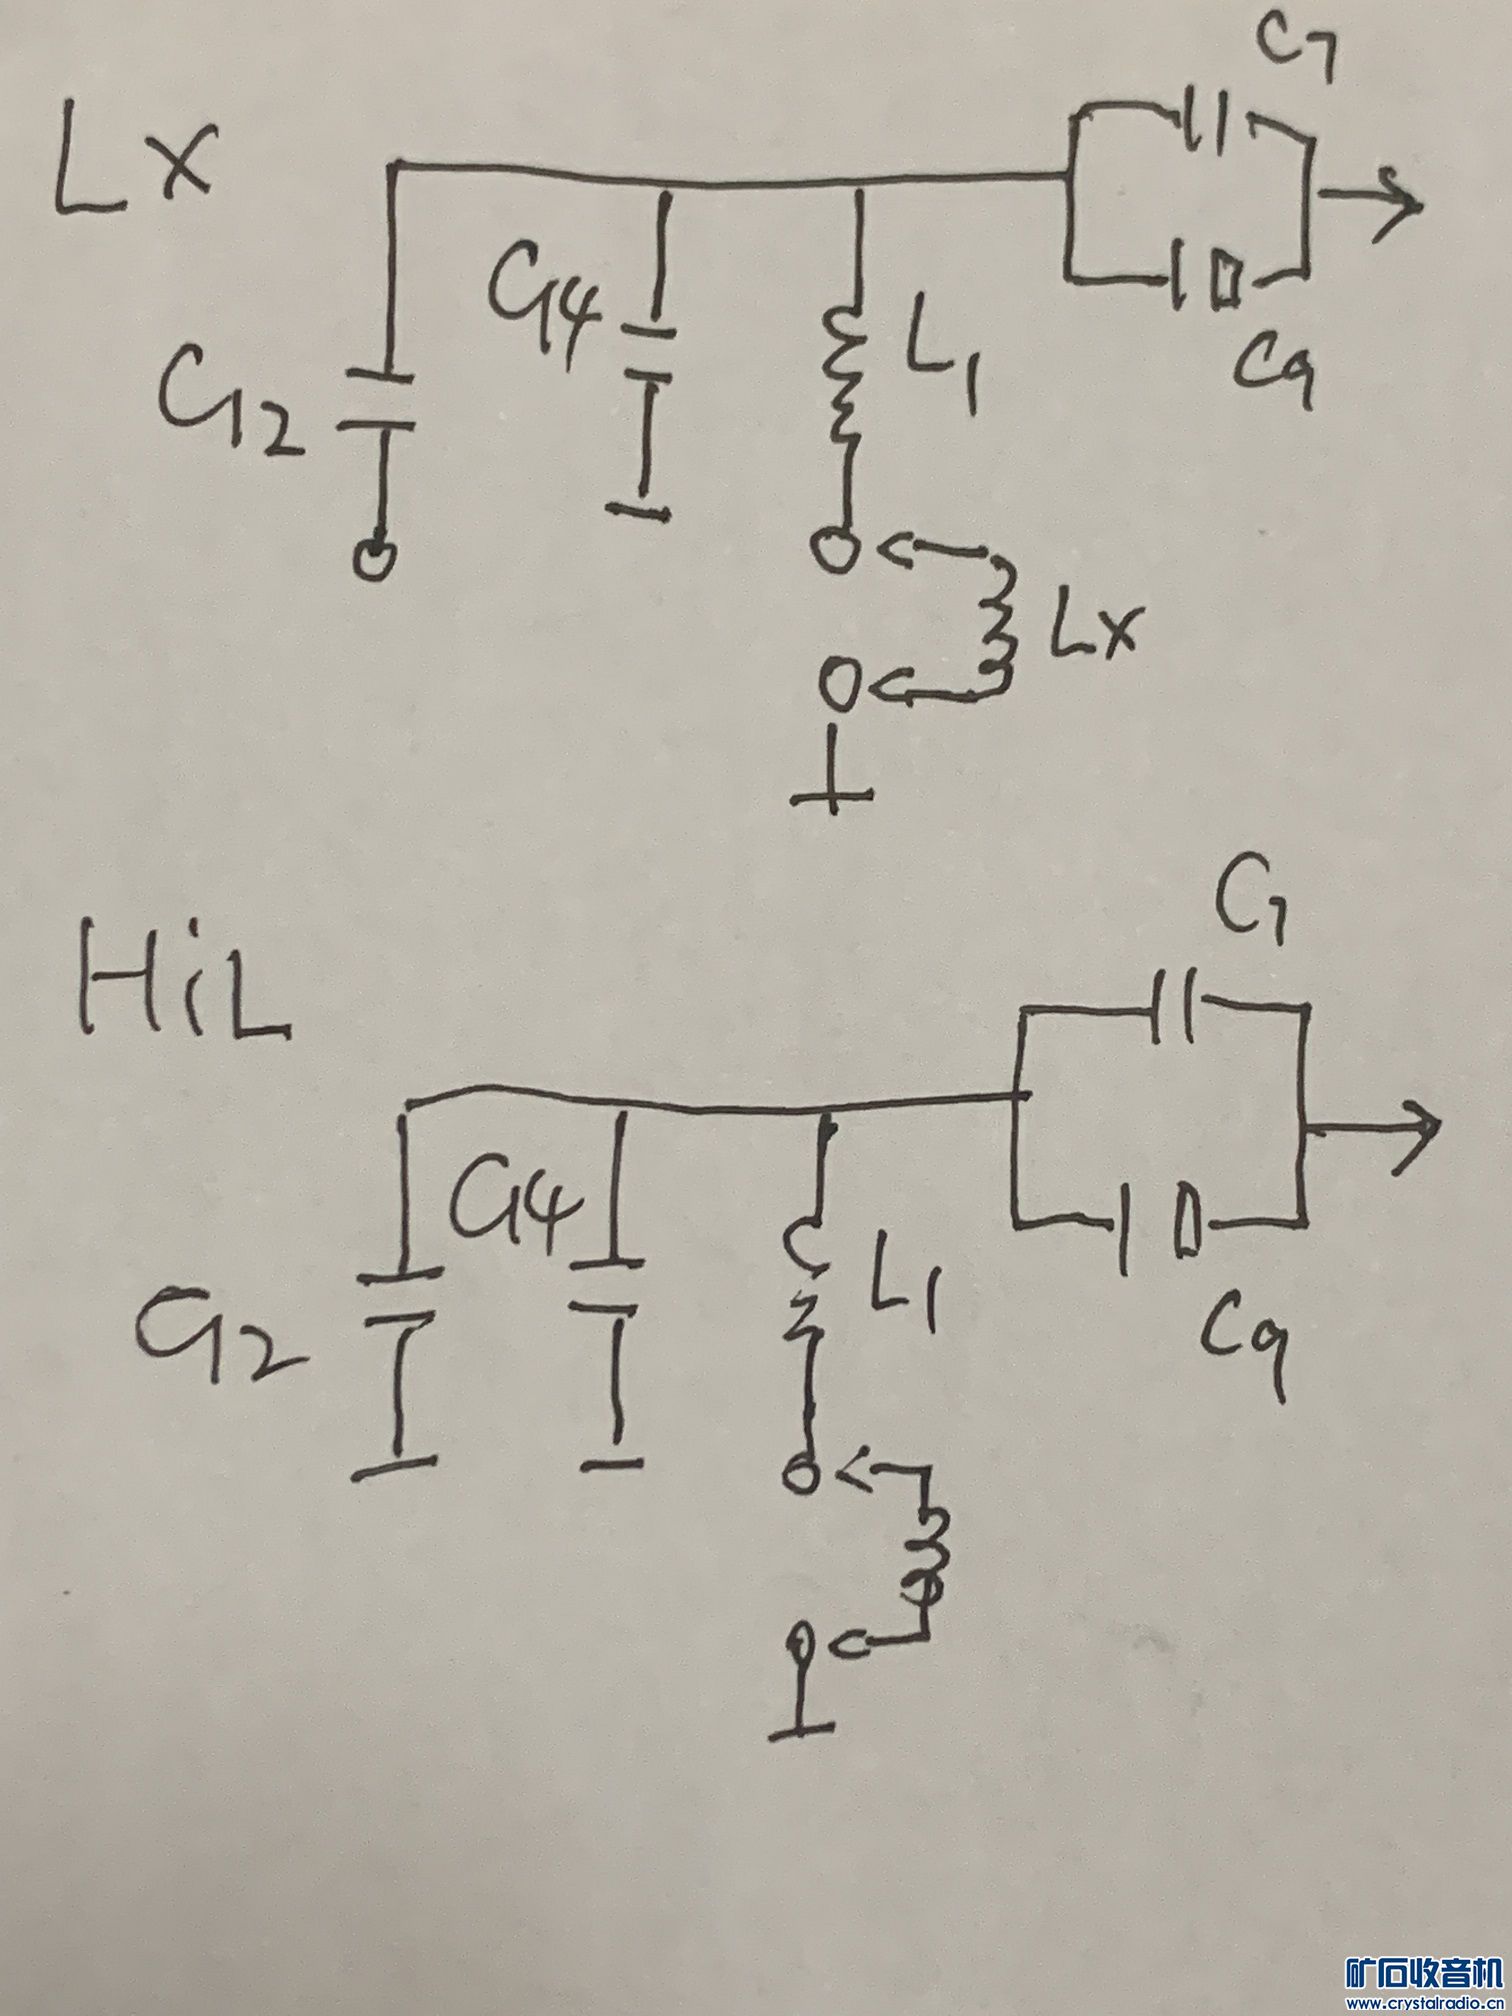 Lx
C7
C12
C14
L1
C9
Lx
HiL
C7
C12
C14
L1
C9
矿石收音机
www.crystalradio.cn